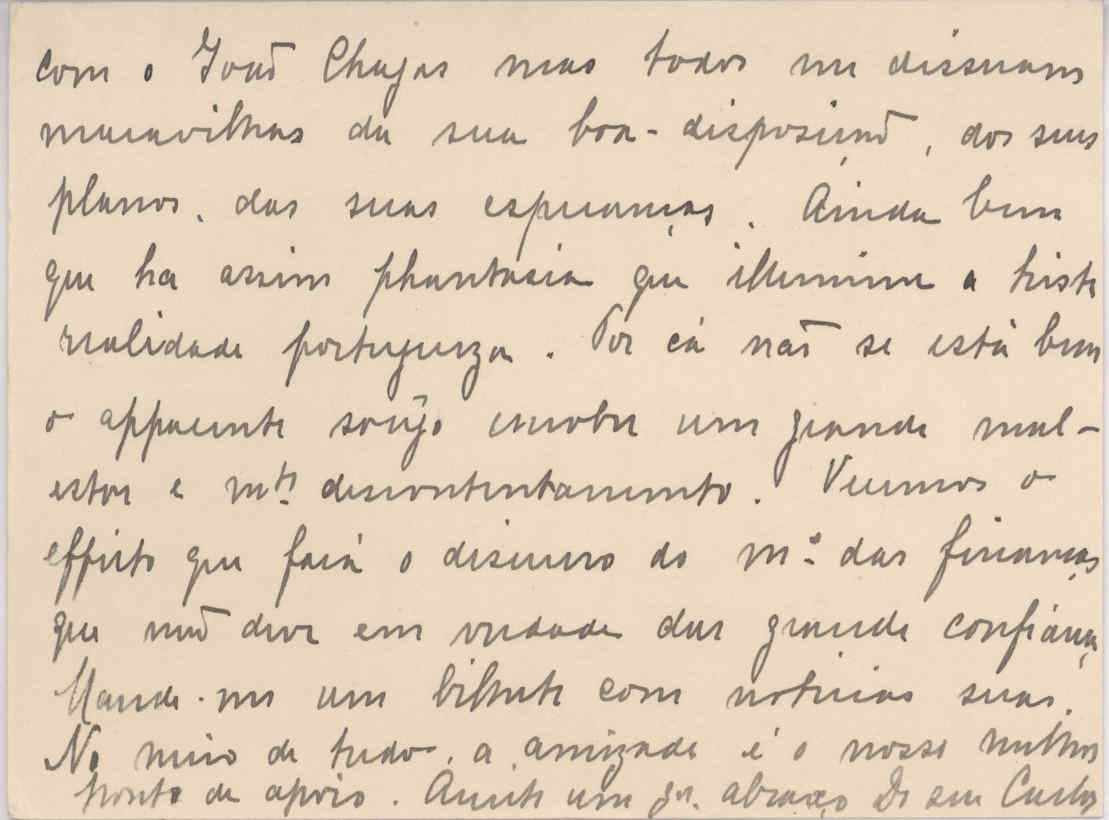 com o João Chagas mas todos me disseram
maravilhas da sua boa-disposição, dos seus
planos, das suas esperanças. Ainda bem
que ha assim phantasia que illumine a triste
realidade portugueza. Por cá não se está bem
o apparente socêgo encobre um grande mal-
estar e mto. descontentamento. Veremos o
effeito que fará o discurso do mo. das finanças
que não deve em verdade dar grande confiança
Mande-me um bilhete com noticias suas.
No meio de tudo, a amizade é o nosso melhor
ponto de apoio. Aceite um gr. abraço do seu Carlos